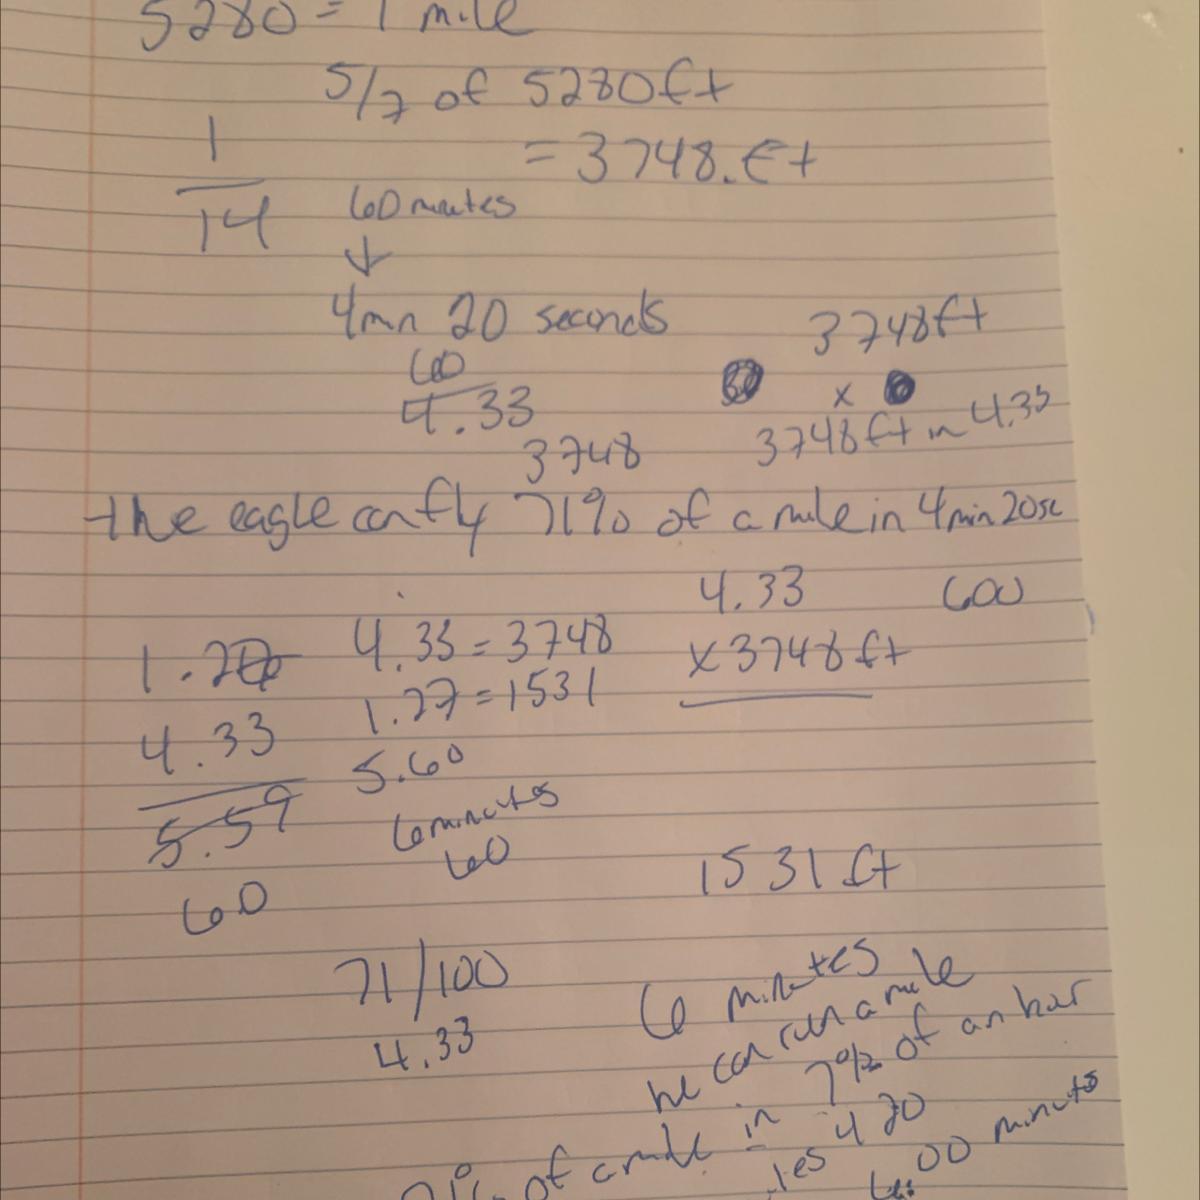 5280 = 1 mile
5/7 of 5280ft
= 3748.ft
1
14
60 minutes
↓
4min 20 seconds
60
4.33
3748ft
x
3748ft in 4.33
3748
the eagle can fly 71% of a mile in 4min 20sc
4.33
x3748ft
600
1.27
4.33
5.59
60
4.33 = 3748
1.27 = 1531
5.60
6 minutes
60
1531 ft
71/100
4.33
6 minutes
he can run a mile
of a mile in 7% of an hour
4 20
6:00 minuts